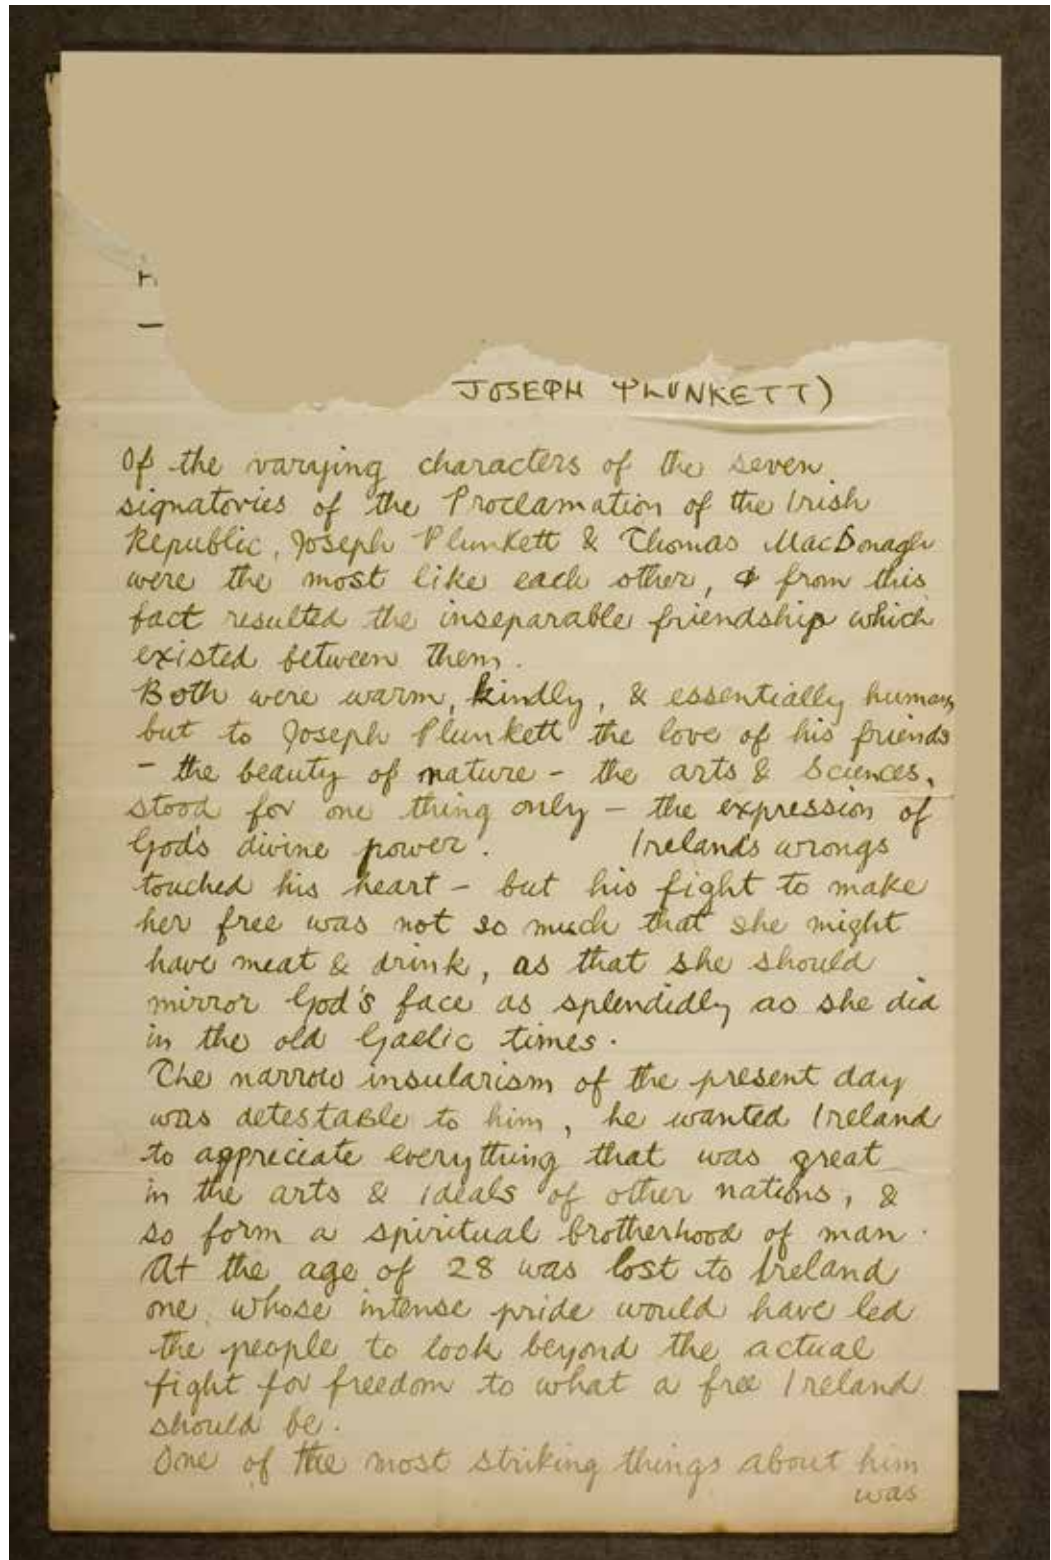 JOSEPH PLUNKETT)
Of the varying characters of the seven
signatories of the Proclamation of the Irish
Republic, Joseph Plunkett & Thomas MacDonagh
were the most like each other, & from this
fact resulted the inseparable friendship which
existed between them.
Both were warm, kindly, & essentially human,
but to Joseph Plunkett the love of his friends
– the beauty of nature – the arts & sciences,
stood for one thing only – the expression of
God's divine power. Ireland's wrongs
touched his heart – but his fight to make
her free was not so much that she might
have meat & drink, as that she should
mirror God's face as splendidly as she did
in the old Gaelic times.
The narrow insularism of the present day
was detestable to him, he wanted Ireland
to appreciate everything that was great
in the arts & ideals of other nations, &
so form a spiritual brotherhood of man.
At the age of 28 was lost to Ireland
one whose intense pride would have led
the people to look beyond the actual
fight for freedom to what a free Ireland
should be.
One of the most striking things about him
was